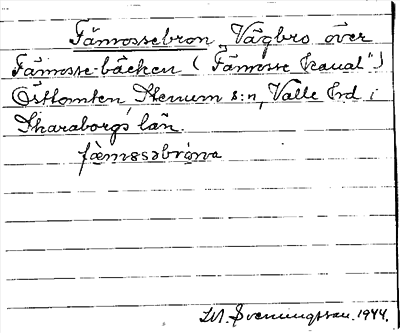 Fämossebron, Vägbro över
Fämosse-bäcken ("Fämosse kanal")
Östtomten Stenum s:n, Valle hd i
Skaraborgs län.
fämosəbróna
M. Sveningsson. 1944.